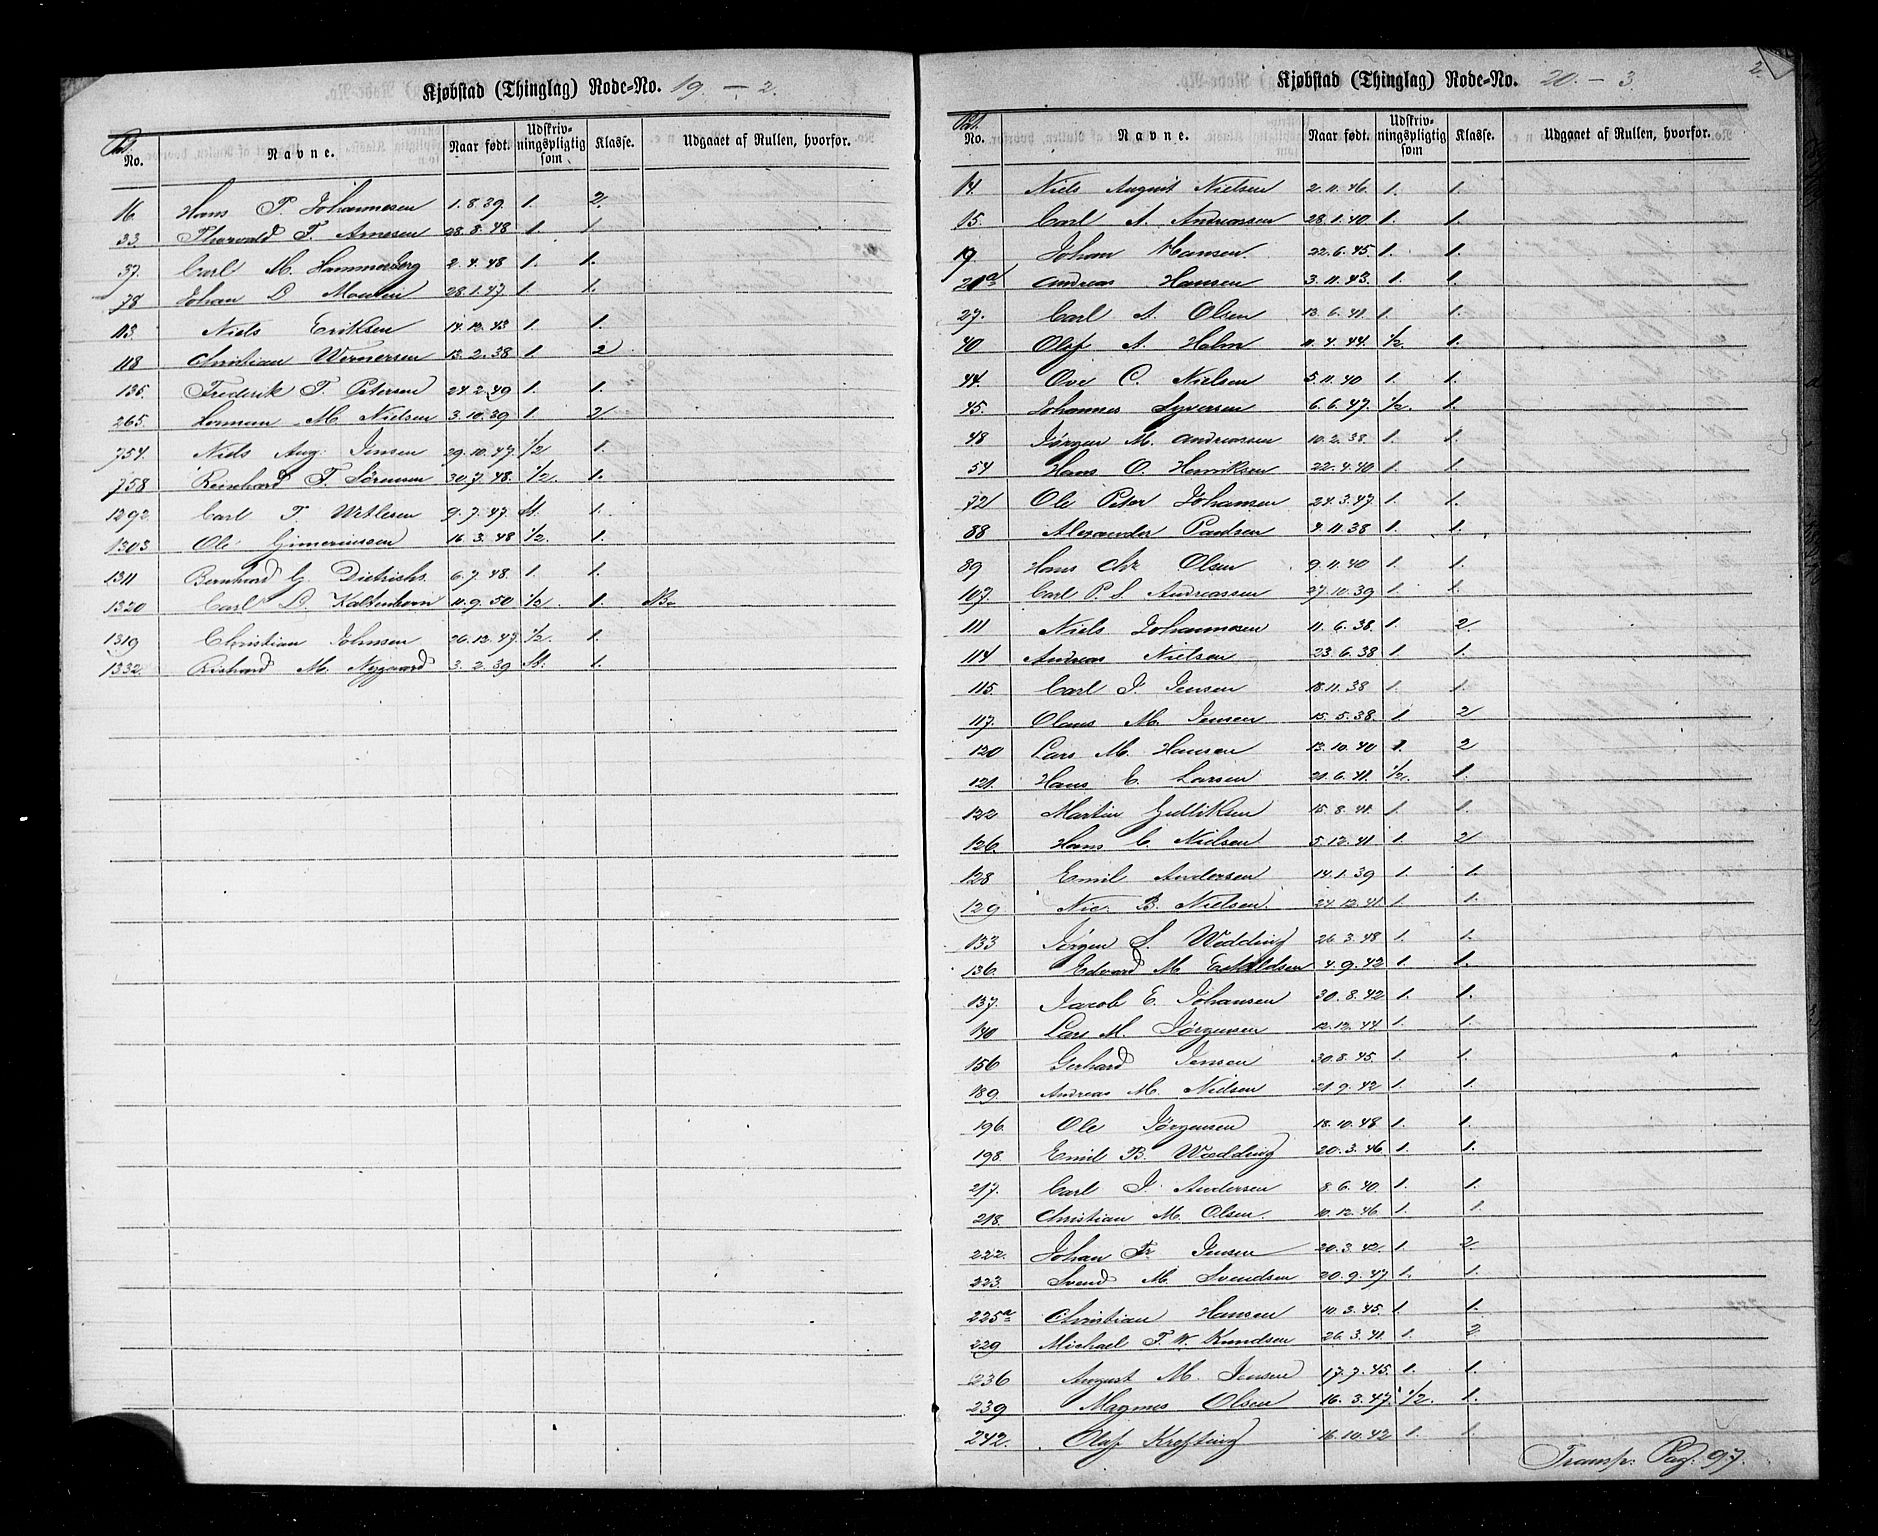 Kjøbstad (Thinglag) Rode-No. 19 – 2.
Pat. No. Navne. Naar født. Udskriv- ningspligtig som Klasse. Udgaaet af Rullen, hvorfor.
16 Hans P. Johannesen 1.8.39 1. 2.
33 Thorvald F. Arnesen 28.8.48 1. 1.
37. Carl M. Hammerberg 2.4.48 1. 1.
78 Johan D. 28.1.47 1. 1.
113. Niels Eriksen 14.12.43 1. 1.
118 Christian Wernersen 13.2.38 1. 2
135. Frederik F. Petersen 24.2.49 1. 1.
265. Herman M. Nielsen 3.10.39 1. 2.
754. Niels Aug. Jensen 29.10.47. 1/2 1.
758 Reinhard F. Sörensen 30.7.48. 1/2. 1.
1292. Carl F. 9.7.47. St. 1.
1303. Ole 16.3.48 1/2. 1.
1311 Bernhard G. Dietrichs. 6.7.48. 1. 1.
1320 Carl D. Kaltenborn 11.9.50 1/2. 1.
1319 Christian Johnsen 26.12.47. 1/2. 1.
1332. Richard M. Nygaard 3.2.39 St. 1.
2.
Kjøbstad (Thinglag) Rode-No. 20. – 3.
Pat. No. Navne. Naar født. Udskriv- ningspligtig som Klasse. Udgaaet af Rullen, hvorfor.
14. Niels August Nielsen 2.11.46. 1. 1.
15. Carl A. Andreassen 28.1.40 1. 1.
17. Johan Hansen 22.6.45. 1. 1.
21a Andreas Hansen 3.11.43. 1. 1.
27. Carl A. Olsen 13.6.41. 1. 1.
40 Olaf A. Holm 11.4.44. 1/2. 1.
44. Ove C. Nielsen 5.11.40 1. 1.
45. Johannes Syversen 6.6.47. 1/2. 1.
48 Jørgen M. Andreassen 10.2.38. 1. 1.
54 Hans O. Henriksen 22.4.40 1. 1.
72 Ole Peter Johansen 24.3.47. 1. 1.
88 Alexander Paulsen 4.11.38 1. 1.
89 Hans Chr. Olsen 9.11.40 1. 1.
107 Carl P. S. Andreassen 27.10.39 1. 1.
111 Niels Johannesen 11.6.38. 1. 2.
114 Andreas Nielsen 23.6.38 1. 1.
115. Carl J. Jensen 18.11.38 1. 1.
117. Olaus M. Jensen 15.5.38. 1 2
120 Lars M. Hansen 13.10.40 1. 2
121. Hans C. Larsen 21.6.41. 1/2. 1.
122 Martin Gulliksen 15.8.41. 1. 1.
126. Hans C. Nielsen 5.12.41 1. 2
128 Emil Andersen 14.1.39 1. 1.
129 Nic. B. Nielsen. 24.12.41 1. 1.
133 Jörgen S. Wedding 26.3.48 1. 1.
136 Edvard M. 4.9.42 1. 1.
137. Jacob E. Johansen 30.8.42 1. 1.
140 Lars M. Jörgensen 12.12.44 1. 1.
156 Gerhard Jensen 30.8.45. 1. 1.
189. Andreas M. Nielsen 21.9.42 1. 1.
196. Ole Jörgensen 18.10.48 1. 1.
198. Emil B. Wedding 20.3.46. 1. 1.
217. Carl J. Andersen 8.6.40. 1. 1.
218. Christian M. Olsen. 10.12.46 1. 1.
222. Johan Fr. Jensen 20.3.42. 1. 2.
223. Svend M. Svendsen 20.9.47 1. 1.
225a Christian Hansen 10.3.45. 1. 1.
229 Michael F. W. Knudsen 26.3.41. 1. 2
236 August M. Jensen 17.7.45. 1. 1.
239 Magnus Olsen 16.3.47. 1/2. 1.
242. Olaf Krefting 16.10.42 1. 1.
Transp. Pag. 97.